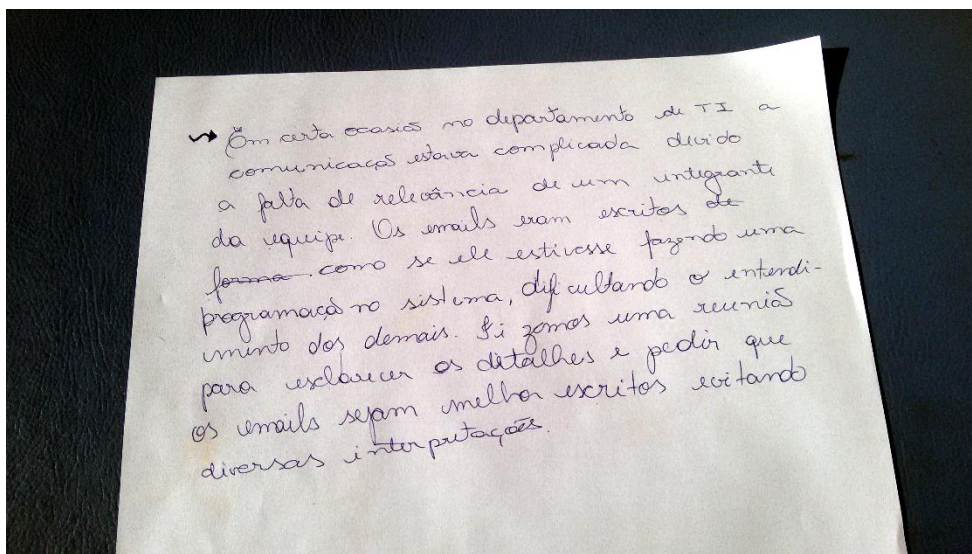 Em certa ocasião no departamento de TI a
comunicação estava complicada devido
a falta de relevância de um integrante
da equipe. Os emails eram escritos de
forma como se ele estivesse fazendo uma
programação no sistema, dificultando o entendi-
mento dos demais. Fizemos uma reunião
para esclarecer os detalhes e pedir que
os emails sejam melhor escritos evitando
diversas interpretações.